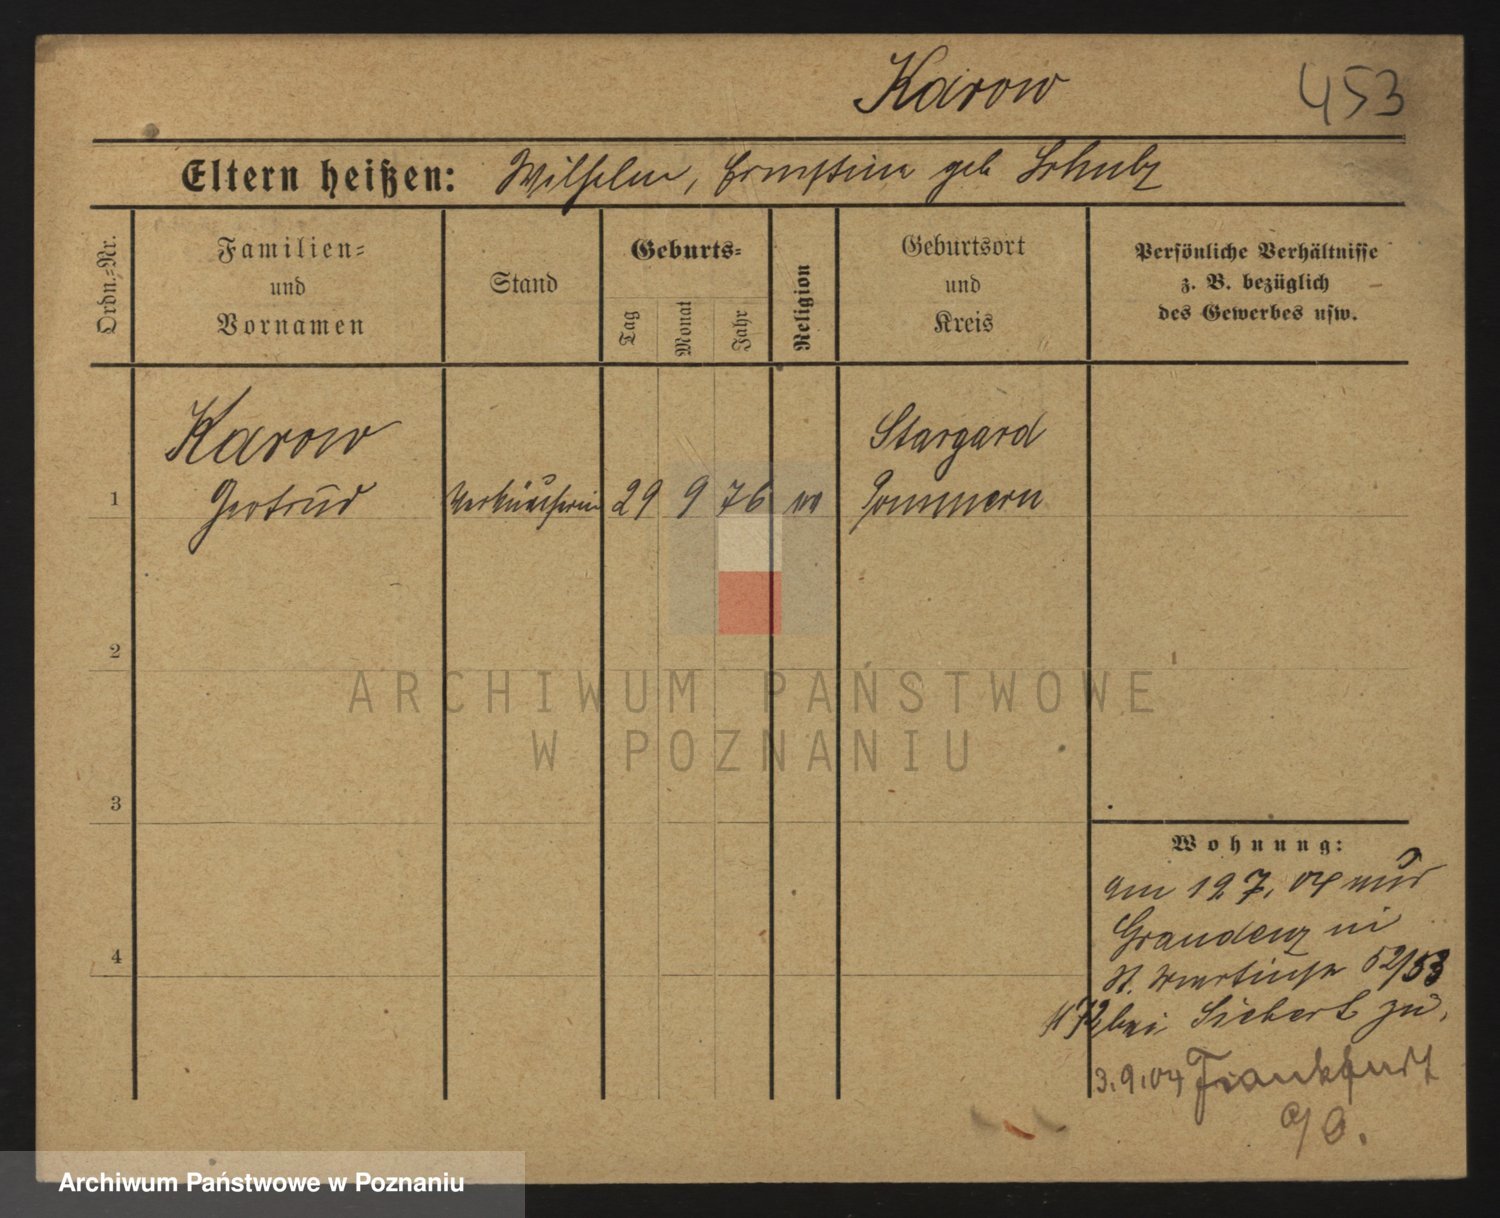 Karow
453
Eltern heißen: Wilhelm, Ernstine geb Schulz
Ordn.-Nr.
Familien-
und
Vornamen
Stand
Geburts-
Tag
Monat
Jahr
Religion
Geburtsort
und
Kreis
Persönliche Verhältnisse
z. B. bezüglich
des Gewerbes usw.
Karow
Stargard
1
Gertrud
Verkäuferin
29
9
76
Pommern
2
ARCHIWUM PAŃSTWOWE
W POZNANIU
3
Wohnung:
am 12 7. 04 aus
Graudenz in
St. Martinstr 52/53
bei Siebert zu.
4
3.9.04 Frankfurt
a/O.
Archiwum Państwowe w Poznaniu